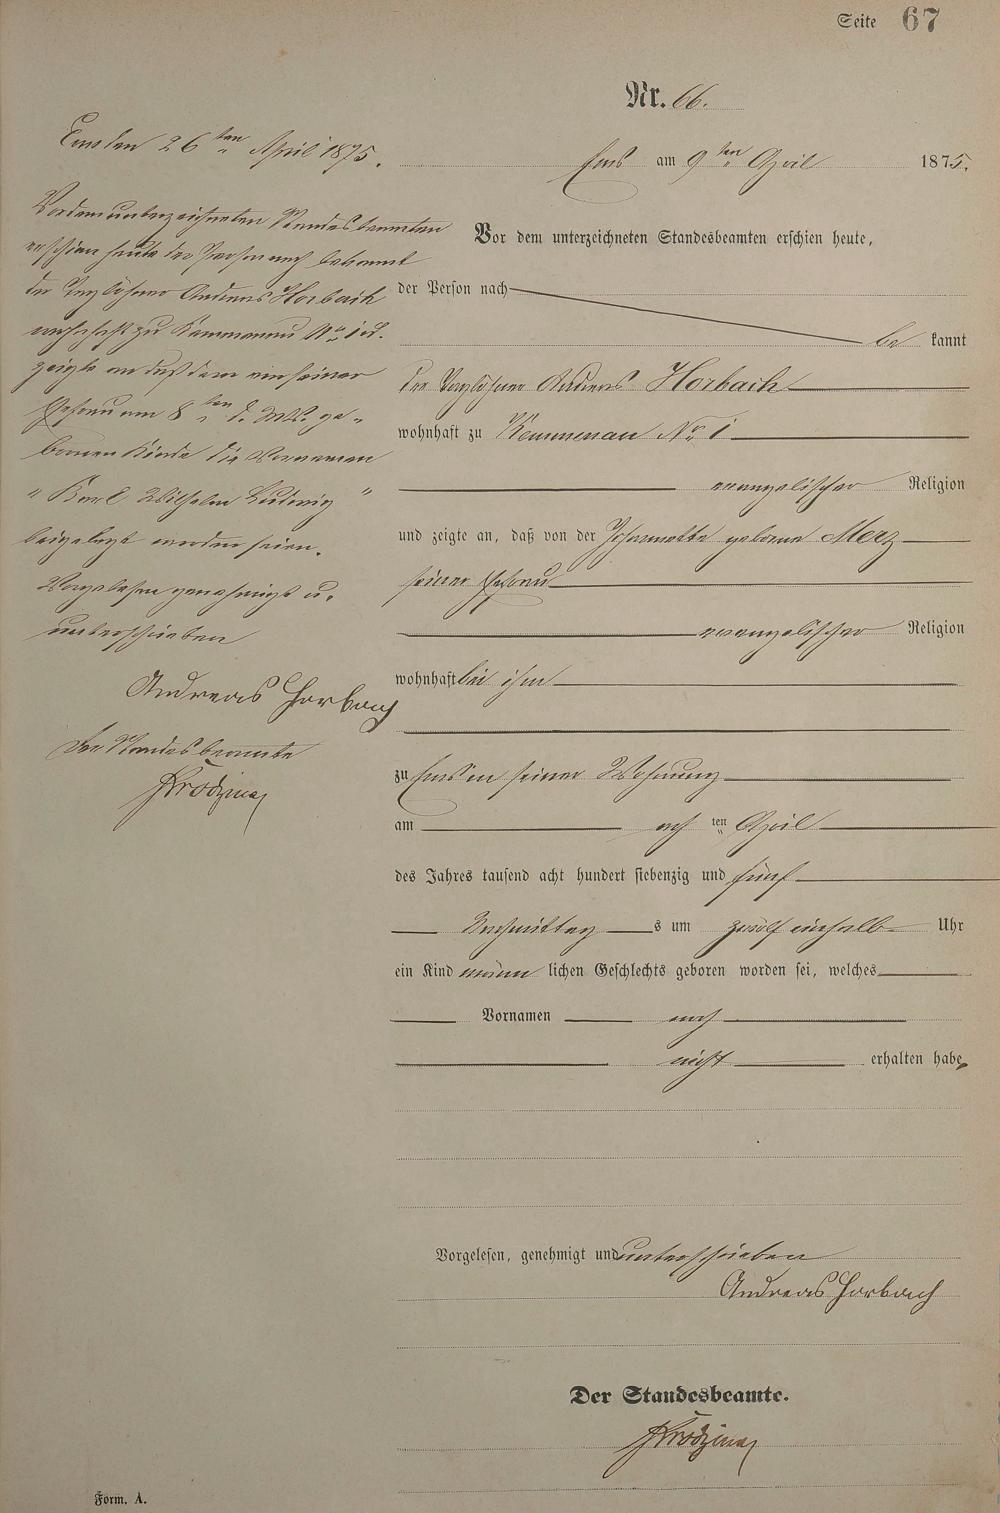 Seite 67
Nr. 66.
Ems am 9ten April 1875.
Vor dem unterzeichneten Standesbeamten erschien heute,
der Person nach
be kannt
der Taglöhner Andreas Horbach
wohnhaft zu Kemmenau No 1
evangelischer Religion
und zeigte an, daß von der Johannette geborene Merz
seiner Ehefrau
evangelischer Religion
wohnhaft bei ihm
zu Ems in seiner Wohnung
am acht ten April
des Jahres tausend acht hundert siebenzig und fünf
Nachmittag s um zwölf einhalb Uhr
ein Kind männ lichen Geschlechts geboren worden sei, welches
Vornamen noch
nicht erhalten habe,
Vorgelesen, genehmigt und unterschrieben
Andreas Horbach
Der Standesbeamte.
Form. A.
Ems den 26ten April 1875.
Vor dem unterzeichneten Standesbeamten
erschien heute der Person nach bekannt
der Taglöhner Andreas Horbach
wohnhaft zu Kemmenau No 1 u.
zeigte an daß dem von seiner
Ehefrau am 8ten d. Mts. ge-
borenen Kinde die Vornamen
"Karl Wilhelm Ludwig"
beigelegt worden seien.
Vorgelesen genehmigt u.
unterschrieben
Andreas Horbach
Der Standesbeamte